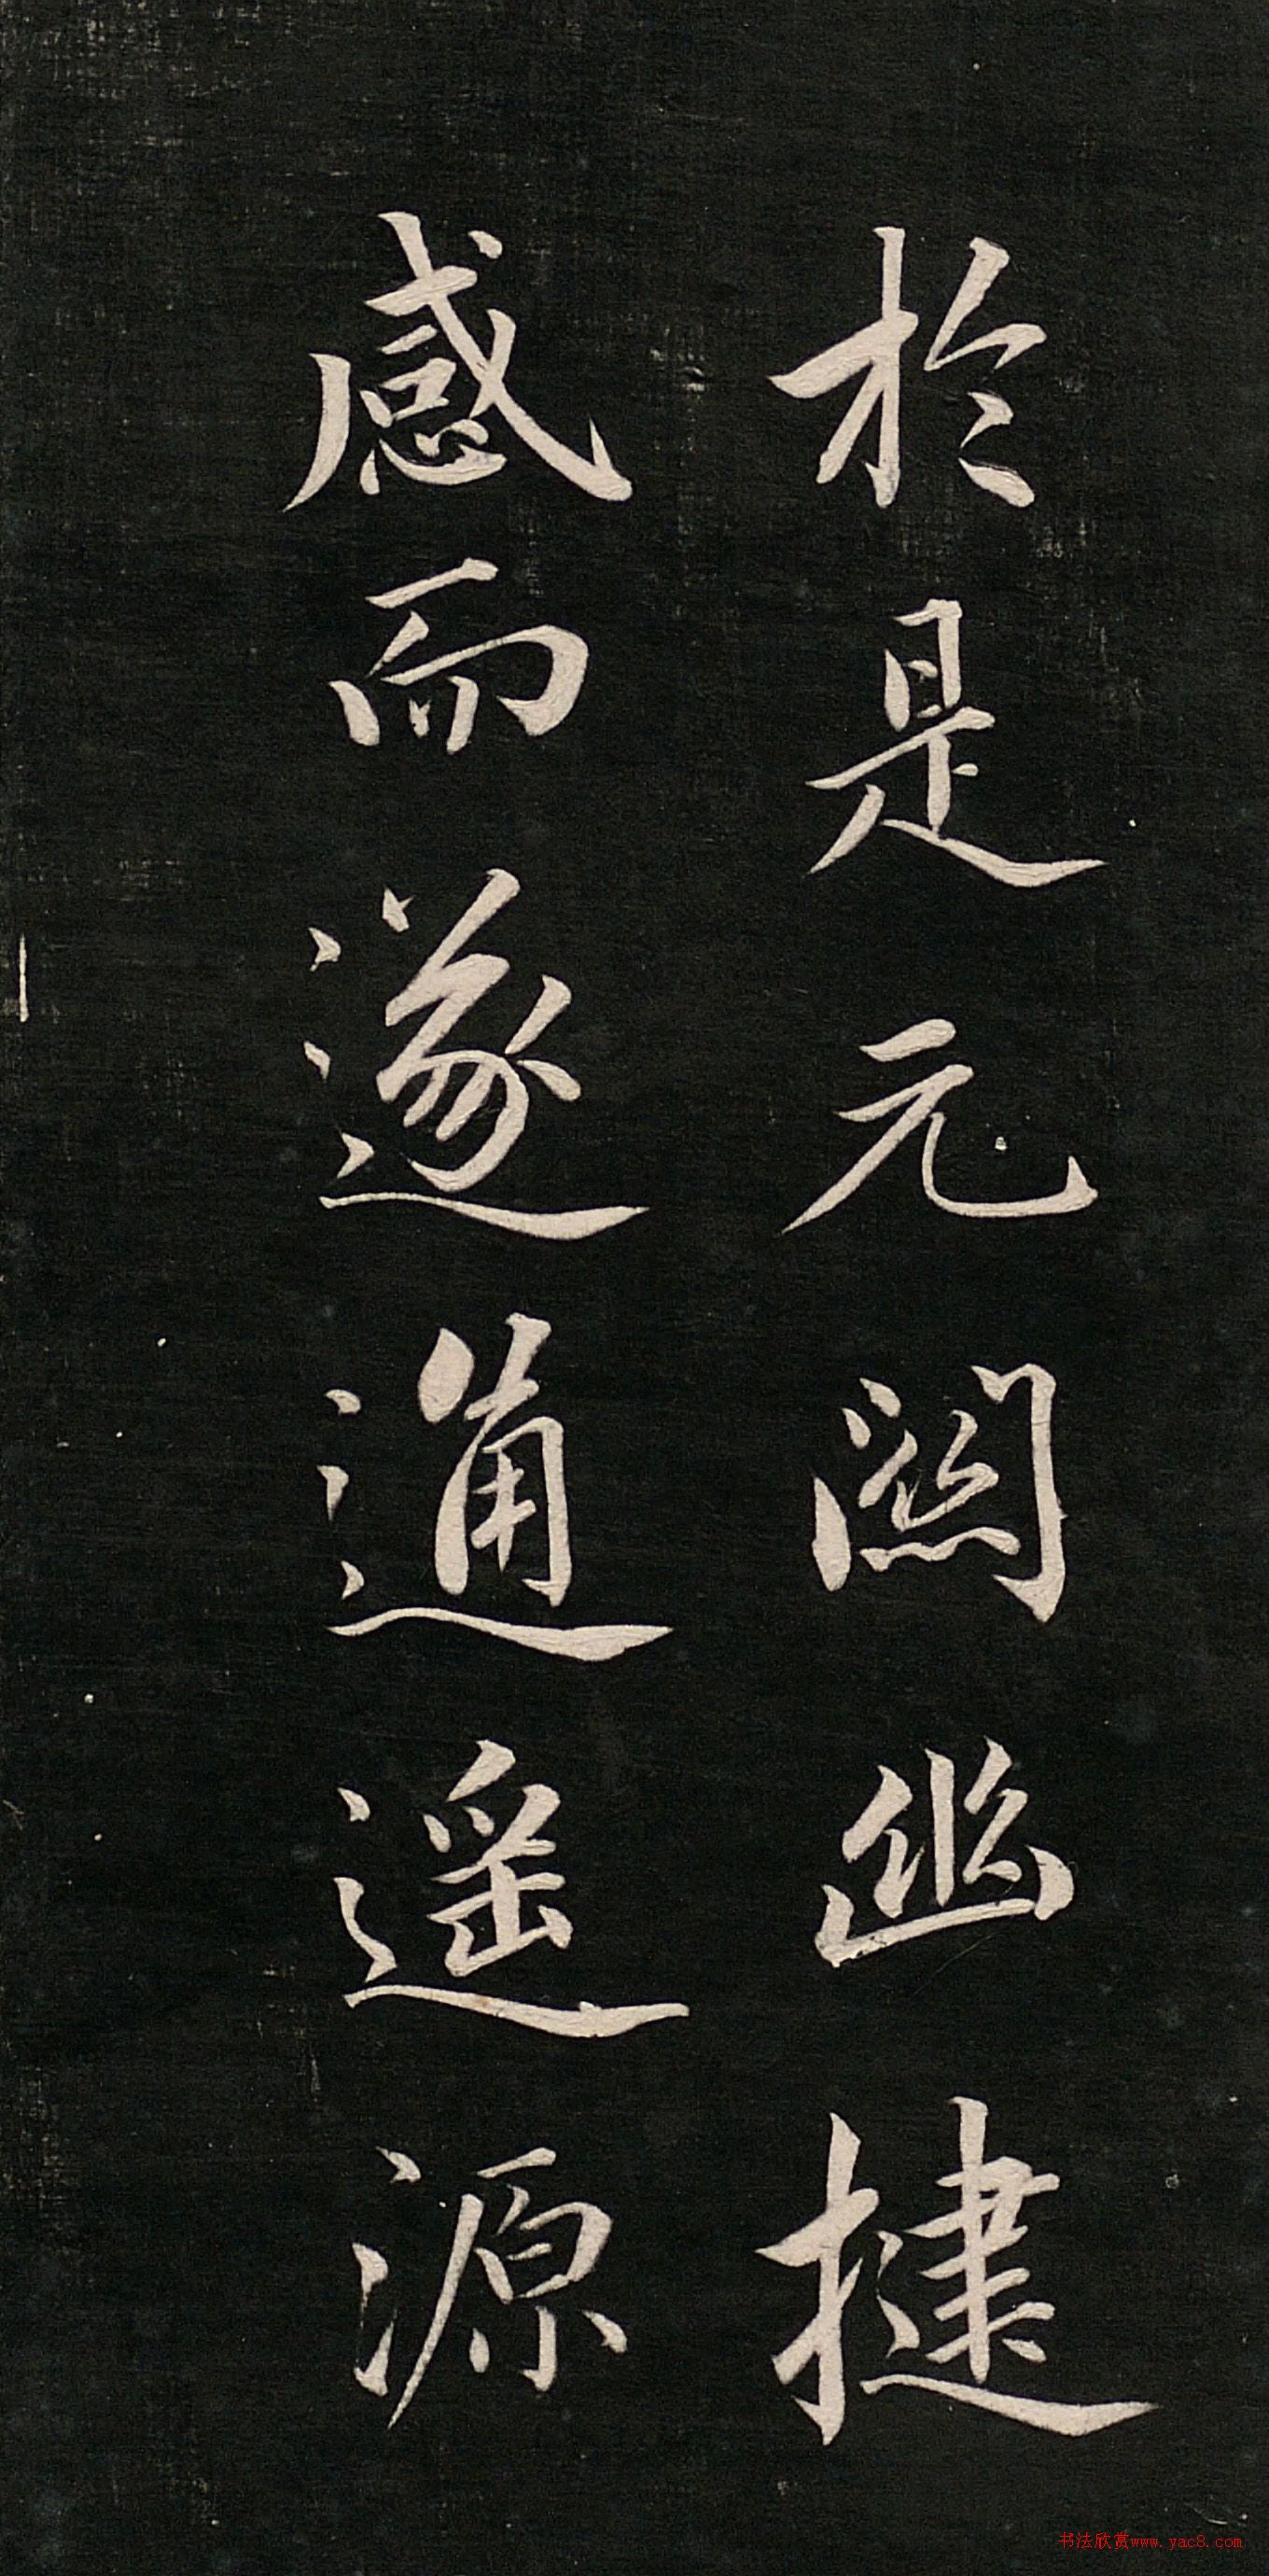 於是元關幽揵
感而遂通遥源
书法欣赏www.yac8.com